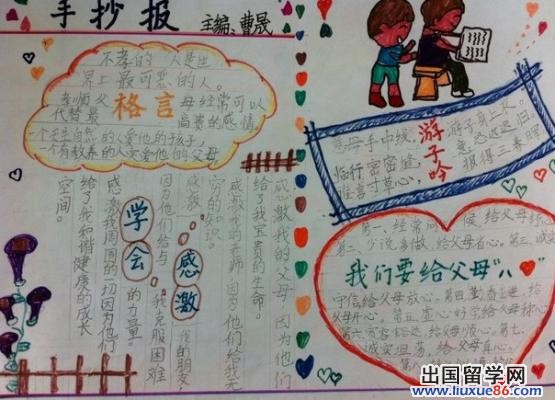 手抄报
主编：曹晟
不孝的人是世
界上最可恶的人。
孝师父母经常可以
代替最高贵的感情。
格言
一个天生自然的人爱他的孩子，
一个有教养的人定爱他的父母
游子吟
慈母手中线，游子身上衣。
临行密密缝，意恐迟迟归
谁言寸草心，报得三春晖
学会感激
感激我的父母，因为他们
给了我宝贵的生命。
感激我的老师，因为他们给我无
穷的知识。
感激 我的朋友
因为他们给与 我克服困难
的力量
感激我周围的一切因为它们
给了我和谐健康的成长
空间。
第一、经常问候给父母
第二、少说多做，给父母省心。第三、诚实
我们要给父母“八心”
守信给父母放心。第四、勤奋上进，给
父母开心。第五、
给父母顺心。第七、
诚实坦荡，给父母
出国留学网
www.liuxue86.com